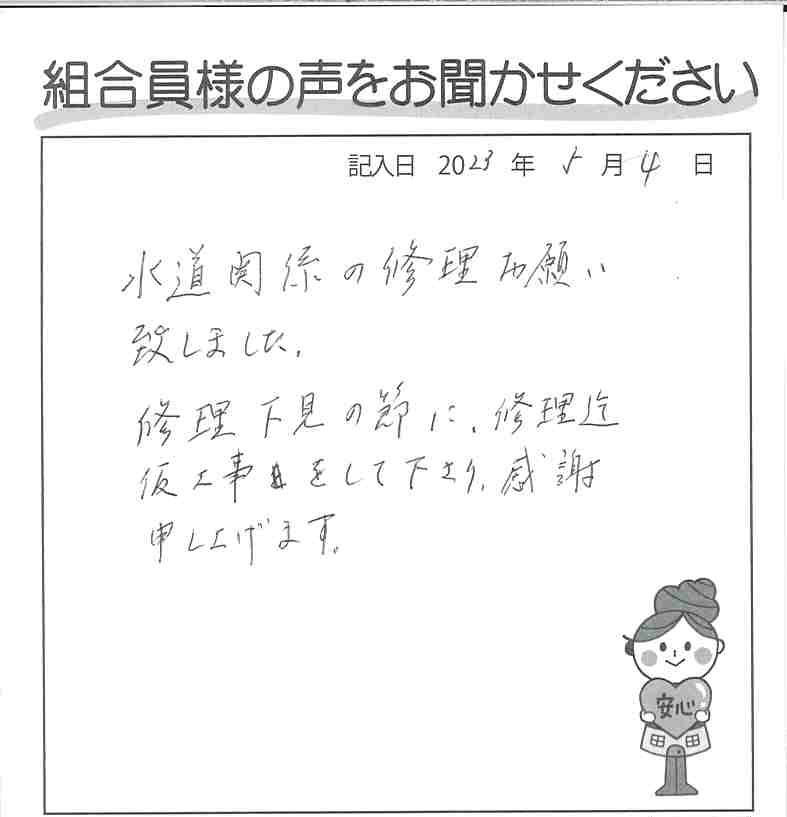 組合員様の声をお聞かせください
記入日 2023 年 5 月 4 日
水道関係の修理お願い
致しました。
修理下見の節に、修理迄
仮工事をして下さり、感謝
申し上げます。
安心